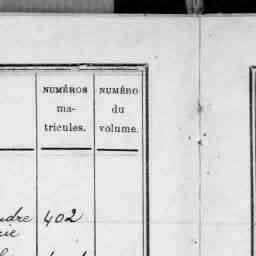 NUMÉROS
ma-
tricules.
NUMÉRO
du
volume.
402